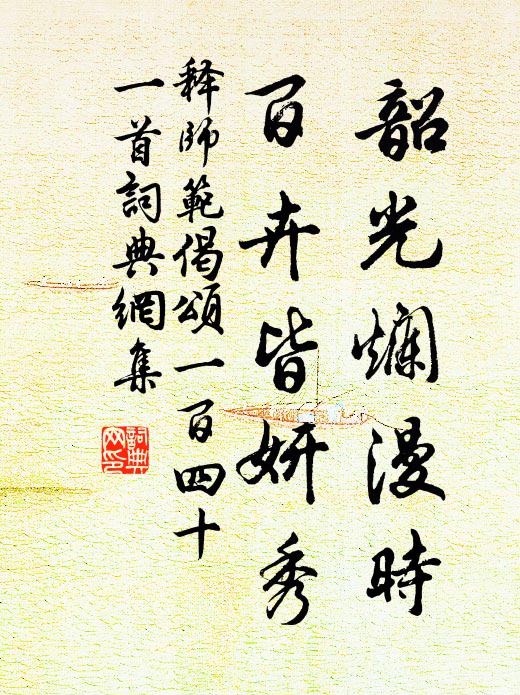 韶光爛漫時
百卉皆妍秀
释師範偈頌一百四十
一首詞典網集
詞典
网印